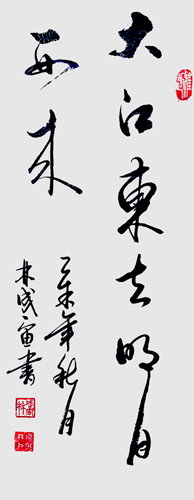 大江東去明月
西来
乙未年秋月
林成書